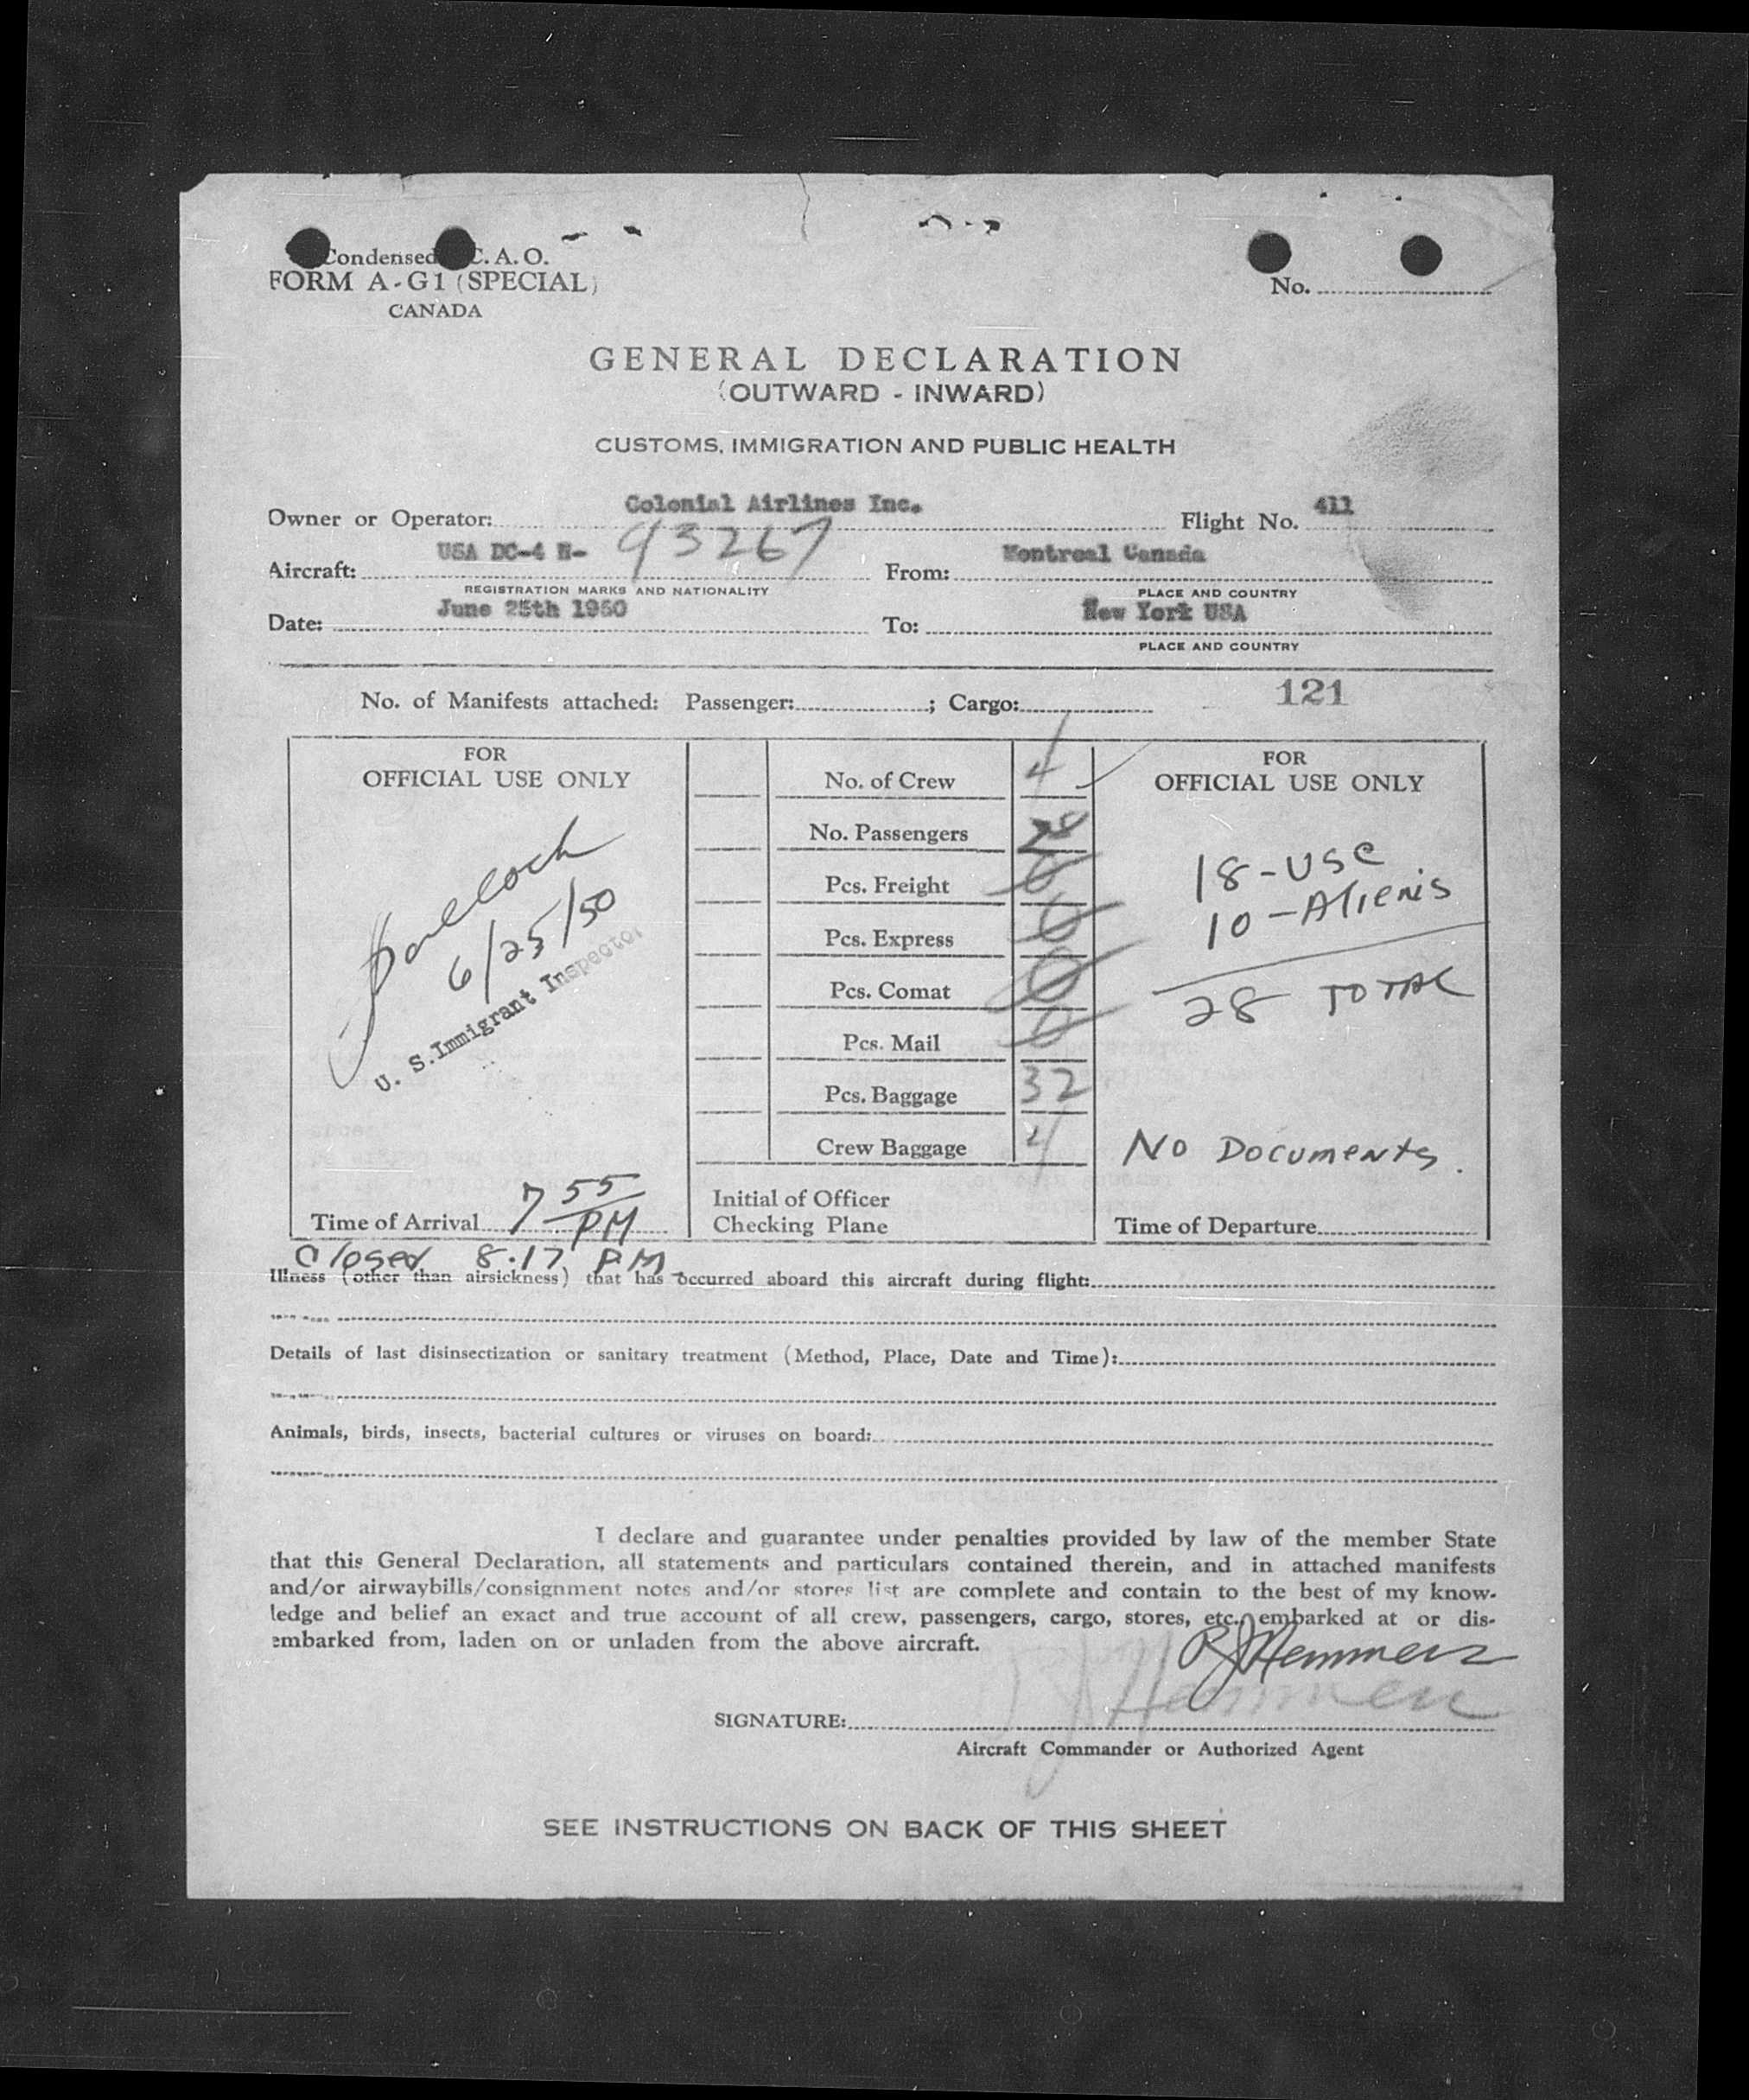 Condensed C. A. O.
FORM A-G1 (SPECIAL)
CANADA
No.
GENERAL DECLARATION
(OUTWARD - INWARD)
CUSTOMS, IMMIGRATION AND PUBLIC HEALTH
Owner or Operator: Colonial Airlines Inc. Flight No. 411
Aircraft: USA DC-4 N- 93267 From: Montreal Canada
REGISTRATION MARKS AND NATIONALITY PLACE AND COUNTRY
Date: June 25th 1950 To: New York USA
PLACE AND COUNTRY
No. of Manifests attached: Passenger: ; Cargo: 121
FOR
OFFICIAL USE ONLY
6/25/50
U. S. Immigrant Inspector
Time of Arrival 7 55 PM
Closed 8.17 PM
No. of Crew 4
No. Passengers 28
Pcs. Freight 0
Pcs. Express 0
Pcs. Comat 0
Pcs. Mail 0
Pcs. Baggage 32
Crew Baggage 4
Initial of Officer
Checking Plane
FOR
OFFICIAL USE ONLY
18-USC
10-Aliens
28 TOTAL
No Documents.
Time of Departure
Illness (other than airsickness) that has occurred aboard this aircraft during flight:
Details of last disinsectization or sanitary treatment (Method, Place, Date and Time):
Animals, birds, insects, bacterial cultures or viruses on board:
I declare and guarantee under penalties provided by law of the member State
that this General Declaration, all statements and particulars contained therein, and in attached manifests
and/or airwaybills/consignment notes and/or stores list are complete and contain to the best of my know-
ledge and belief an exact and true account of all crew, passengers, cargo, stores, etc., embarked at or dis-
embarked from, laden on or unladen from the above aircraft.
SIGNATURE:
Aircraft Commander or Authorized Agent
SEE INSTRUCTIONS ON BACK OF THIS SHEET